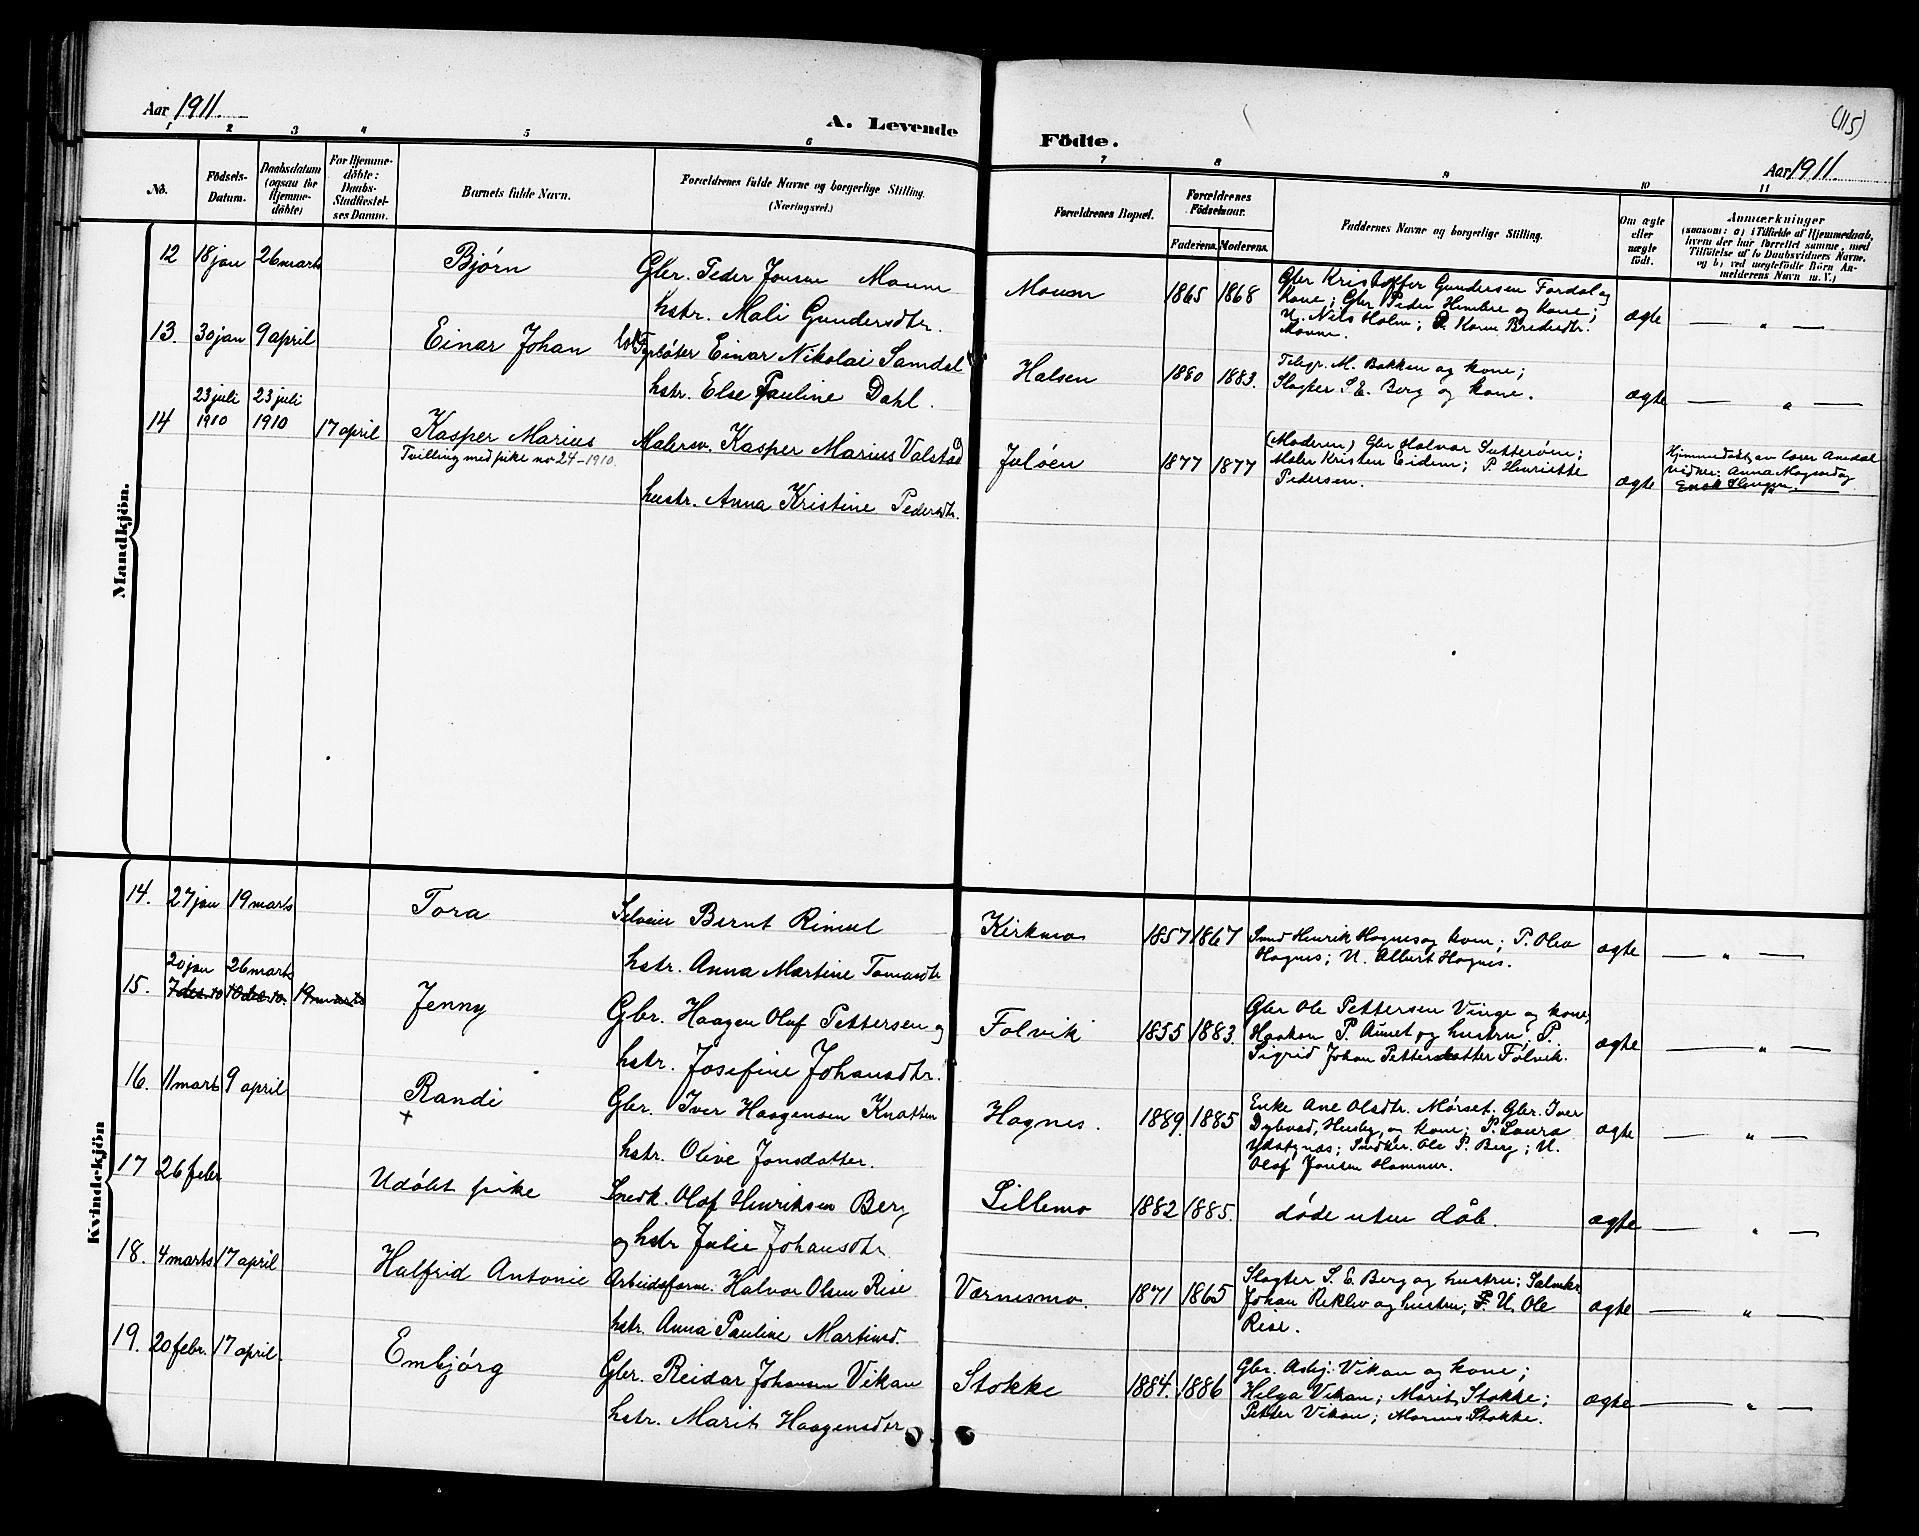 Aar 1911.
A. Levende Födte.
(115)
Aar 1911.
1 2 3 4 5 6 7 8 9 10 11
No.
Födsels-Datum.
Daabsdatum (ogsaa for Hjemme-döbte)
For Hjemme-döbte: Daabs-Stadfæstel-ses Datum.
Barnets fulde Navn.
Forældrenes fulde Navne og borgerlige Stilling. (Næringsvei.)
Forældrenes Bopæl.
Forældrenes Födselsaar.
Faderens. Moderens.
Faddernes Navne og borgerlige Stilling.
Om ægte eller uægte födt.
Anmærkninger
(saasom: a) i Tilfælde af Hjemmedaab, hvem der har forrettet samme, med Tilföielse af to Daabsvidners Navne, og b) ved uægtefödte Börn An-melderens Navn m. V.)
Mandkjön.
12 18 jan 26 marts Bjørn Gbr. Peder Jonsen Moum
hstr. Mali Gundersdtr.
Moum 1865 1868 Gbr Kristoffer Gundersen Fordal og
kone; Gbr Peder Hembre og kone;
U. Nils Holm; P. Karen Bredesdtr.
Moum.
ægte — " —
13. 30 jan 9 april Einar Johan Einar Nikolai Samdal
hstr. Else Pauline Dahl.
Halsen 1880 1883. Telegr. M. Bakken og kone;
Slagter S. E. Berg og kone.
ægte — " —
14 23 juli 1910 23 juli 1910 17 april Kasper Marius
Tvilling med pike no 24 – 1910.
Malersv. Kasper Marius Valstad
hustr. Anna Kristine Pedersdtr.
Juløen 1877 1877 (Moderen) Gbr Halvar Sutterøen;
Maler Kristen Eidem; P. Henriette
Pedersen.
ægte Hjemmedøbt av lærer Arndal
vidner: Anna Mogsed og
Kvindekjön
14. 27 jan 19 marts Tora Bernt Rimul
hstr. Anna Martine Tomasdtr
Kirkmo 1857 1867 Smed Henrik Hognes og kone; P. Olea
Hognes; U. Albert Hognes.
ægte — " —
15. 20 jan 26 marts
7 des 10 10 des 10. 19 marts
Jenny Gbr. Haagen Olaf Pettersen og
hstr. Josefine Johansdtr.
Folvik 1855 1883. Gbr Ole Pettersen Vinge og kone;
Haakon P. Aunet og hustru; P.
Sigrid Johan Pettersdatter Folvik.
ægte — " —
16. 11 marts 9 april Randi
+
Gbr. Iver Haagensen Knotten
hstr. Olive Jonsdatter.
Hognes. 1889. 1885 Enke Ane Olsdtr. Mørset; Gbr. Iver
Dybvad, Husby, og kone; P. Laura
Ydstgnes; Snedker Ole P. Berg; U.
Olaf Jonsen Hammer.
ægte — " —
17 26 febr Udøbt pike Snedk. Olaf Henriksen Berg
og hstr Julie Johansdtr.
Lillemo 1882 1885. døde uten dåb. ægte — " —
18. 4 marts 17 april Halfrid Antonie Arbeidsform. Halvor Olsen Rise
hstr. Anna Pauline Martinsd.
Værnesmo. 1871 1865 Slagter S. E. Berg og hustru; Salmker
Johan Reklev og hustru; U. Ole
Rise.
ægte — " —
19. 20 febr. 17 april. Embjørg Gbr. Reidar Johansen Vikan
hstr. Marit Haagensdtr
Stokke 1884. 1886 Gbr. Asbj. Vikan og kone;
Helga Vikan; Marit Stokke;
Petter Vikan; Marius Stokke.
ægte — " —